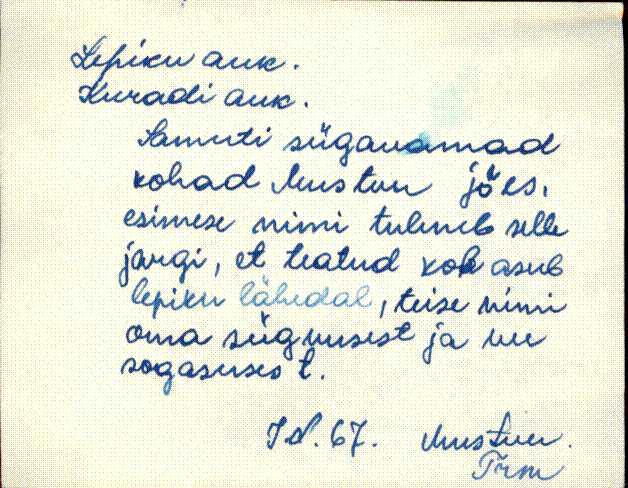 Lepiku auk.
Kuradi auk.
Samuti sügavamad
kohad Mustvee jões,
esimese nimi tuleneb selle
järgi, et teatud koht asub
lepiku lähedal, teise nimi
oma sügavusest ja vee
sogasusest.
67. Mustvee.
Trm